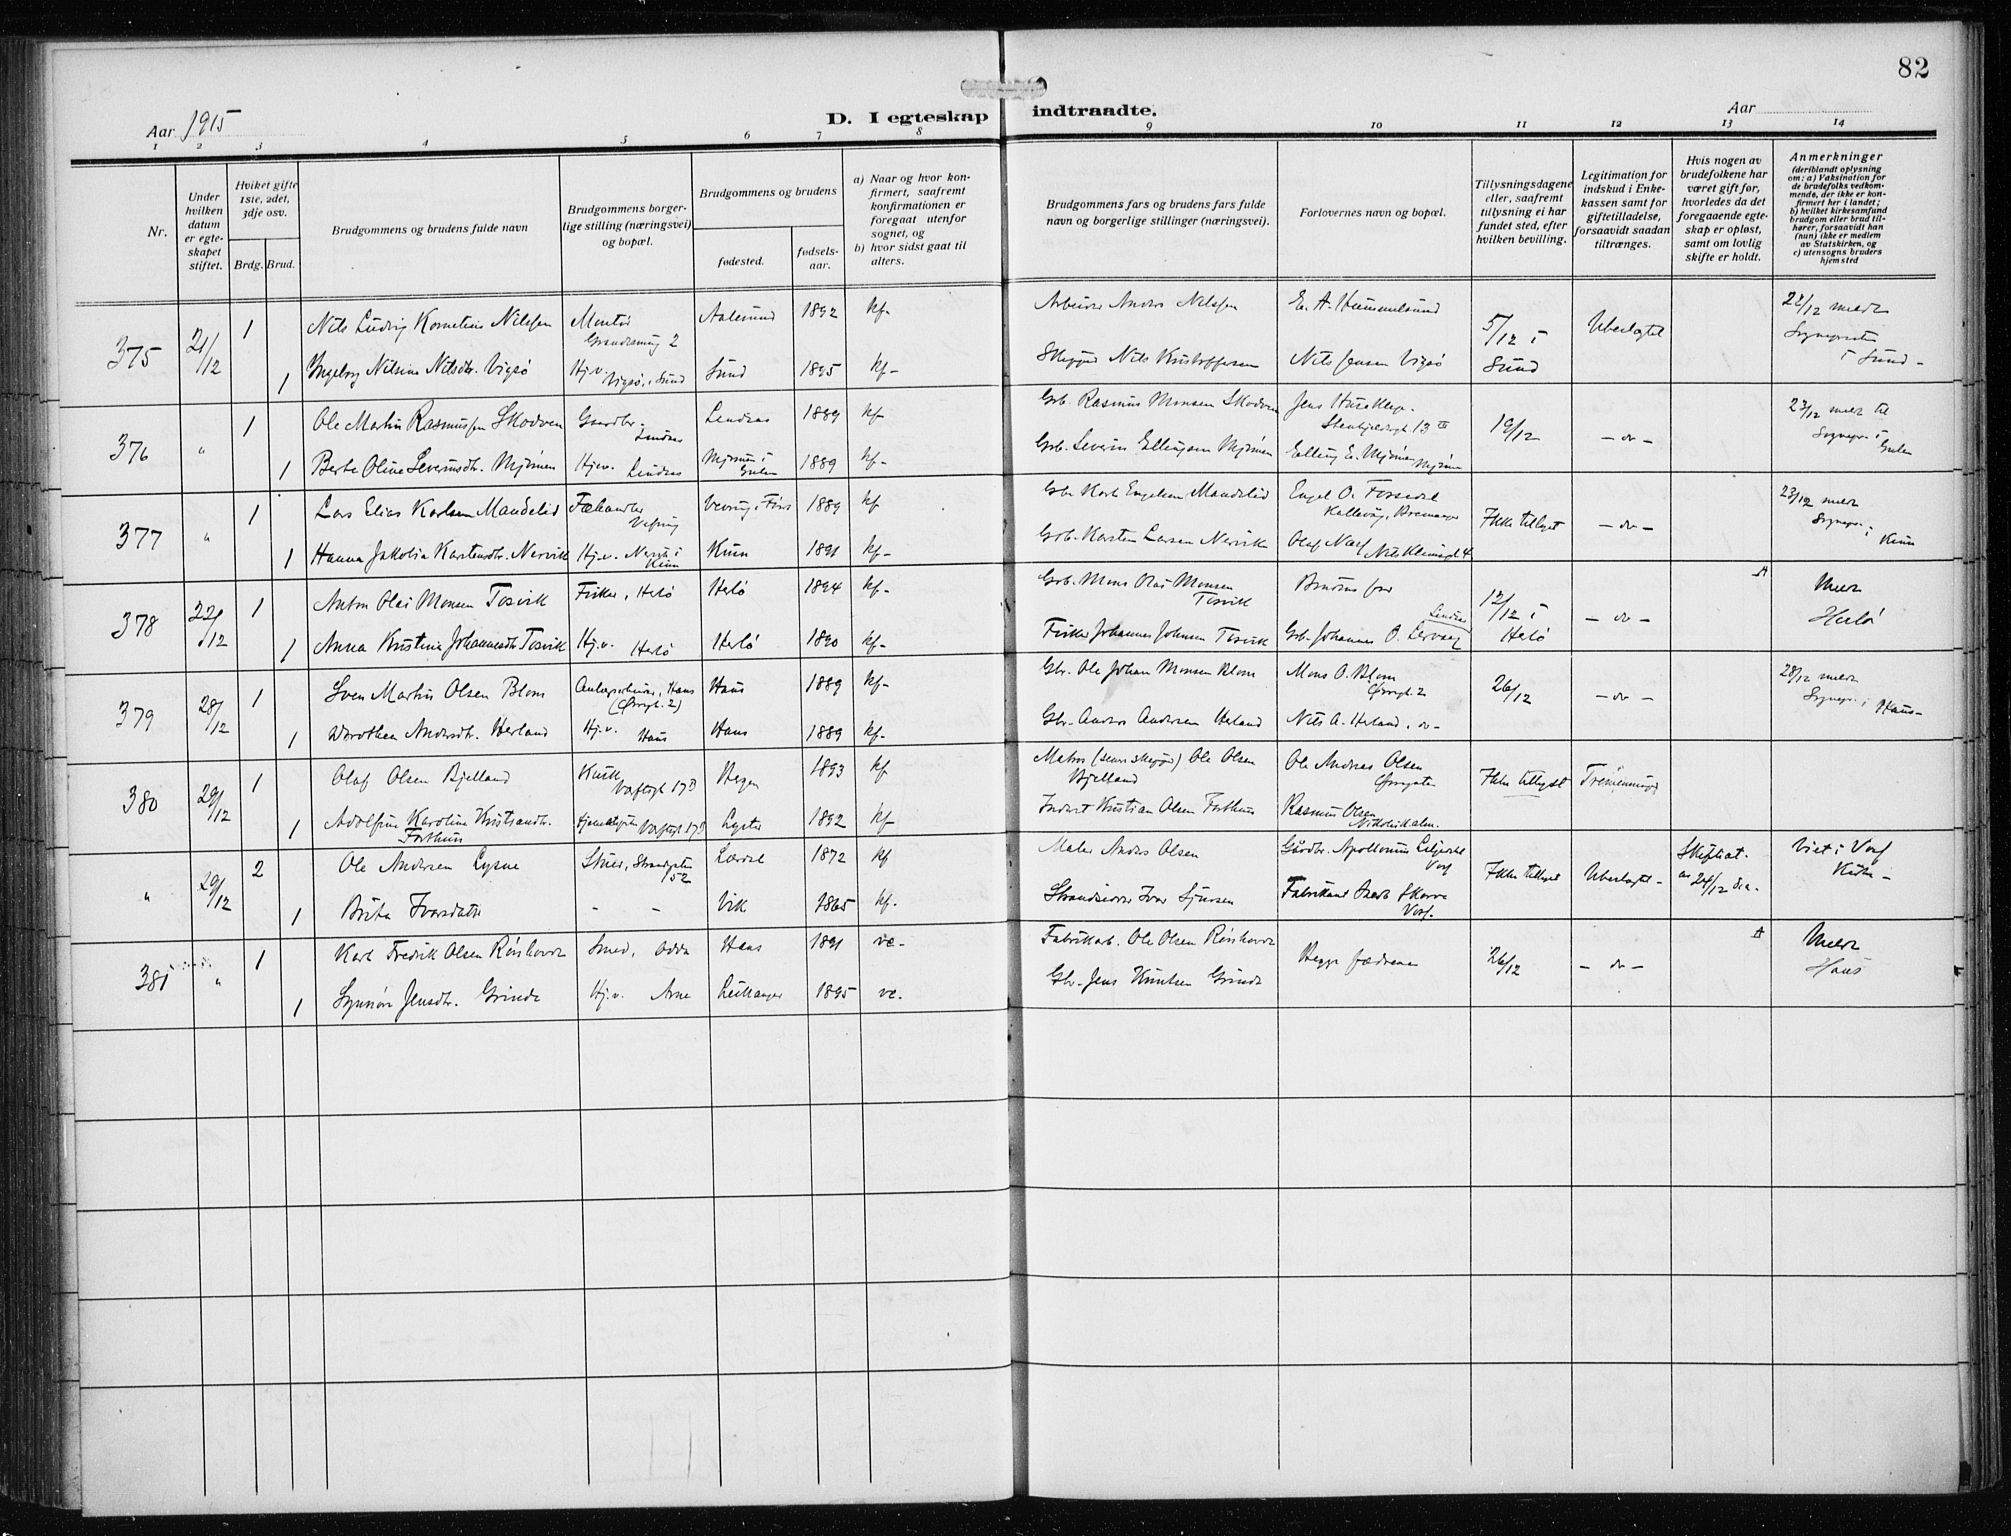 82
Aar 1915
D. I egteskap indtraadte.
Aar
1 2 3 4 5 6 7 8 9 10 11 12 13 14
Nr.
Under hvilken datum er egteskapet stiftet.
Hviket gifte 1ste, 2det, 3dje osv.
Brdg. Brud.
Brudgommens og brudens fulde navn
Brudgommens borgerlige stilling (næringsvei) og bopæl.
Brudgommens og brudens
fødested.
fødselsaar.
a) Naar og hvor konfirmert, saafremt konfirmationen er foregaat utenfor sognet, og
b) hvor sidst gaat til alters.
Brudgommens fars og brudens fars fulde navn og borgerlige stillinger (næringsvei).
Forlovernes navn og bopæl.
Tillysningsdagene eller, saafremt tillysning ei har fundet sted, efter hvilken bevilling.
Legitimation for indskud i Enkekassen samt for giftetilladelse, forsaavidt saadan tiltrænges.
Hvis nogen av brudefolkene har været gift før, hvorledes da det foregaaende egteskap er opløst, samt om lovlig skifte er holdt.
Anmerkninger (deriblandt oplysning om: a) Vaksination for de brudefolks vedkommende, der ikke er konfirmert her i landet; b) hvilket kirkesamfund brudgom eller brud tilhører, forsaavidt han (hun) ikke er medlem av Statskirken, og c) utensogns bruders hjemsted
375 21/12 1 Nils Ludvig Kornelius Nilssen Montør 2 Aalesund 1892 kf. Arbeider Anders Nilssen E. A. Hummelsund 5/12 i Sund 22/12 meldt i Sund
1 Ingeborg Nilsine Nilsdtr. Vigsø Hj.v. Vigsø, Sund Sund 1895 kf. Skipper Nils Kristoffersen Nils Jensen Vigsø
376 " 1 Ole Martin Rasmussen Skodven Gaardbr. Lindaas Lindaas 1889 kf. Grb. Rasmus Monsen Skodven Jens 13 19/12 - do - 23/12 meldt til Sognepr. i Gulen
1 Berte Oline Severinsdtr. Mjømen Hjev. Lindaas Mjømen i Gulen 1889 kf. Grb. Severin Ellingsen Mjømen Elling E. Mjømen
377 " 1 Lars Elias Karlsen Mandelid Fæhandler Vefring i Førs 1889 kf Gbr Karl Engelsen Mandelid Engel O. Kallevåg, Bremanger Ikke tillyst - do - 23/12 meldt Sognepr. i Kinn
1 Hanna Jakobia Karstensdtr. Nervik Hj.v. Nervik i Kinn Kinn 1891 kf. Grb. Karsten Larsen Nervik Olaf 4
378 22/12 1 Anton Olai Monsen Tosvik Fisker, Herlø Herlø 1894 kf. Grb. Mons Olai Monsen Tosvik Brudens far 12/12 i Herlø - do - Meldt Herlø
1 Anna Kristine Johannesdtr Tosvik Hj.v. Herlø Herlø 1890 kf. Fisker Johannes Johnsen Tosvik Grb. Johannes O. Lervaag Lindaas
379 28/12 1 Sven Martin Olsen Blom Anlægsarbeider, Haus (Øvregt. 2) Haus 1889 kf. Gbr. Ole Johan Monsen Blom Mons O. Blom Øvregt. 2 26/12 - do - 28/12 meldt Sognepr. i Haus
1 Dorothea Andersdtr. Herland Hj.v. Haus Haus 1889 kf. Gbr. Anders Andersen Herland Nils A. Herland, do
380 29/12 1 Olaf Olsen Bjelland Kusk Verftsgt 17 B Bergen 1893 kf Matros (senere skipper) Ole Olsen Bjelland Ole Andreas Olsen Øvregaten Ikke tillyst Tremenninger
1 Adolfine Karoline Kristiansdtr. Forthun Verftsgt 17 B Lyster 1892 kf Inderst Kristian Olsen Forthun Rasmus Olsen
" 29/12 2 Ole Andersen Lysne Strandgaten 52 Lærdal 1872 kf Maler Anders Olsen Gårdbr. Voss Ikke tillyst Skifteat. av 24/12 d.a. Viet i Voss Kirke
1 Brita Ivarsdatter - - Vik 1865 kf. Strandsidder Ivar Sjursen Fabrikant Skorve Voss.
381 " 1 Karl Fredrik Olsen Rønhovde Smed, Odda Haus 1891 va. Fabrikarb. Ole Olsen Rønhovde Begge fædrene 26/12 - do - Meldt Haus
1 Synnøve Jensdtr. Grinde Hj.v. Arne Leikanger 1895 va. Gbr. Jens Knutsen Grinde